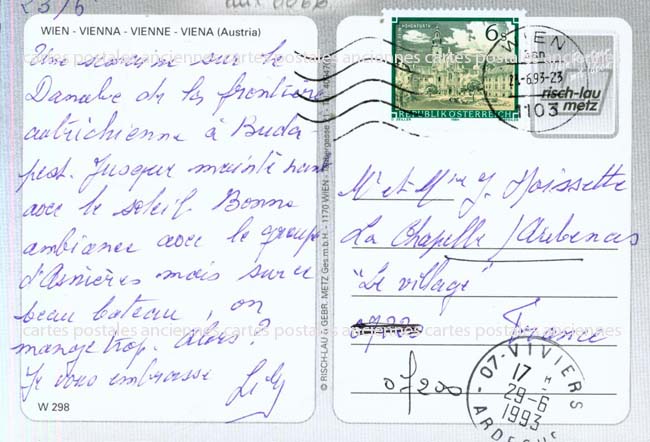 23/6
WIEN - VIENNA - VIENNE - VIENA (Austria)
Une semaine sur le
Danube de la frontière
autrichienne à Buda
pest. Jusque maintenant
avec le soleil. Bonne
ambiance avec le groupe
d'Asnières mais sur ce
beau bateau, on
mange trop. Alors ?
Je vous embrasse
W 298
© RISCH-LAU & GEBR. METZ Ges.m.b.H. - 1170 WIEN
6 S
REPUBLIK ÖSTERREICH
WIEN
-6.93-23
1103
risch-lau
metz
Mr et Mme J. Hoissette
La Chapelle /Aubenas
"Le village"
France
07200
07-VIVIERS
17
29-6
1993
ARDECHE
cartes postales anciennes cartes postales anciennes cartes postales anciennes
cartes postales anciennes cartes postales anciennes cartes postales anciennes